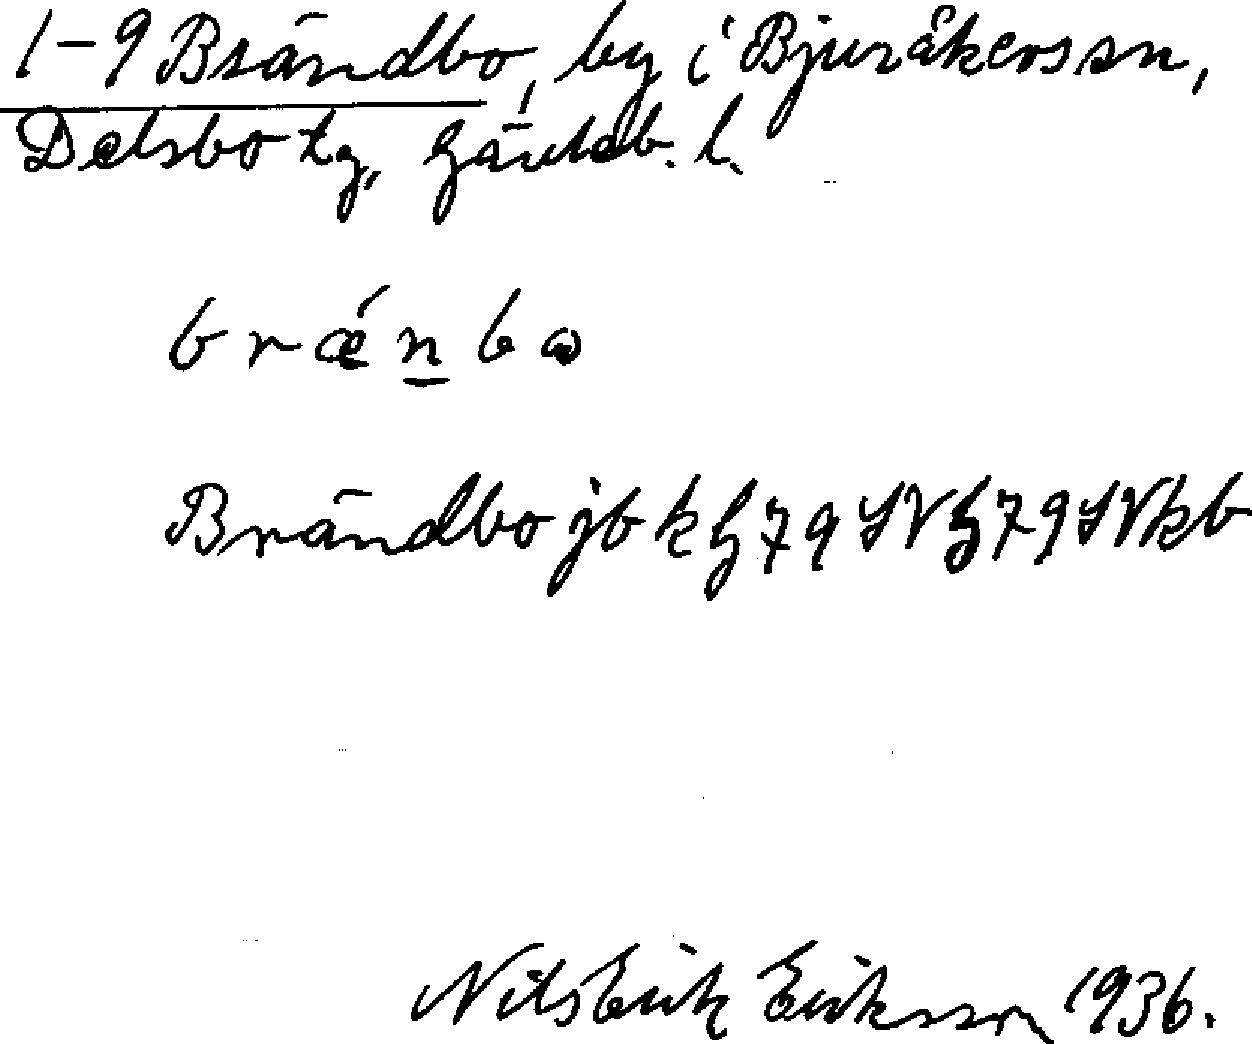 1–9 Brändbo, by i Bjuråkers sn,
Delsbo tg, Gävleb. l.
brǽn̲bω
Brändbo jb k G 79 SV G 79 SV kb
Nils Erik Eriksson 1936.